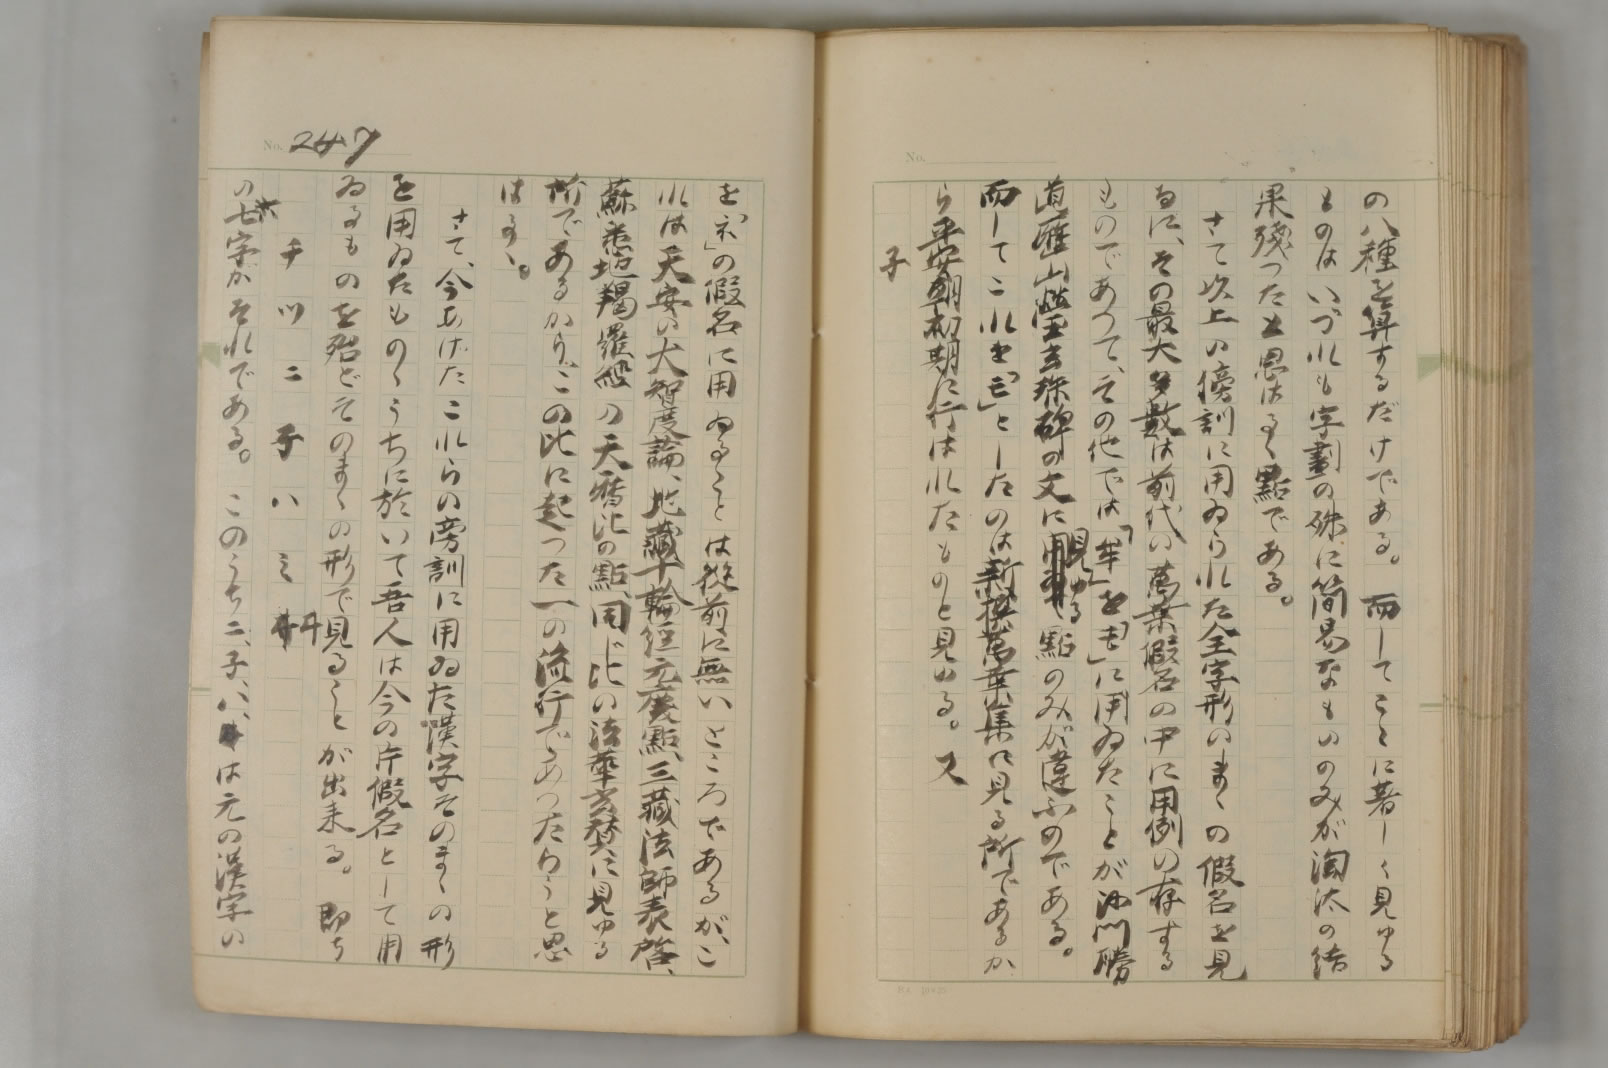 の八種を算するだけである。而してこゝに著しく見ゆる
ものはいづれも字劃の殊に簡易なものゝみが淘汰の結
果殘つたと思はるゝ點である。
さて次上の傍訓に用ゐられた全字形のまゝの假名を見
るに、その最大多數は前代の萬葉假名の中に用例の存する
ものであつて、その他では「牟」を「モ」に用ゐたことが沙門勝
道歴山瑩玄珠碑の文に見ゆる點のみが違ふのである。
而してこれを「モ」としたのは新撰萬葉集に見る所であるか
ら平安朝初期に行はれたものと見ゆる。又
子
No.
No. 247
を「ネ」の假名に用ゐることは從前に無いところであるが、こ
れは天安の大智度論、地藏十輪經元慶點、三藏法師表啓、
蘇悉地羯羅經の天暦比の點、同じ比の法華玄賛に見ゆる
所であるから、この比に起つた一の流行であつたらうと思
はるゝ。
さて、今あげたこれらの旁訓に用ゐた漢字そのまゝの形
を用ゐたものゝうちに於いて吾人は今の片假名として用
ゐるものを殆どそのまゝの形で見ることが出来る。即ち
千 ツ ニ 子 ハ ミ 井
の七字がそれである。このうちニ、子、ハ、は元の漢字の